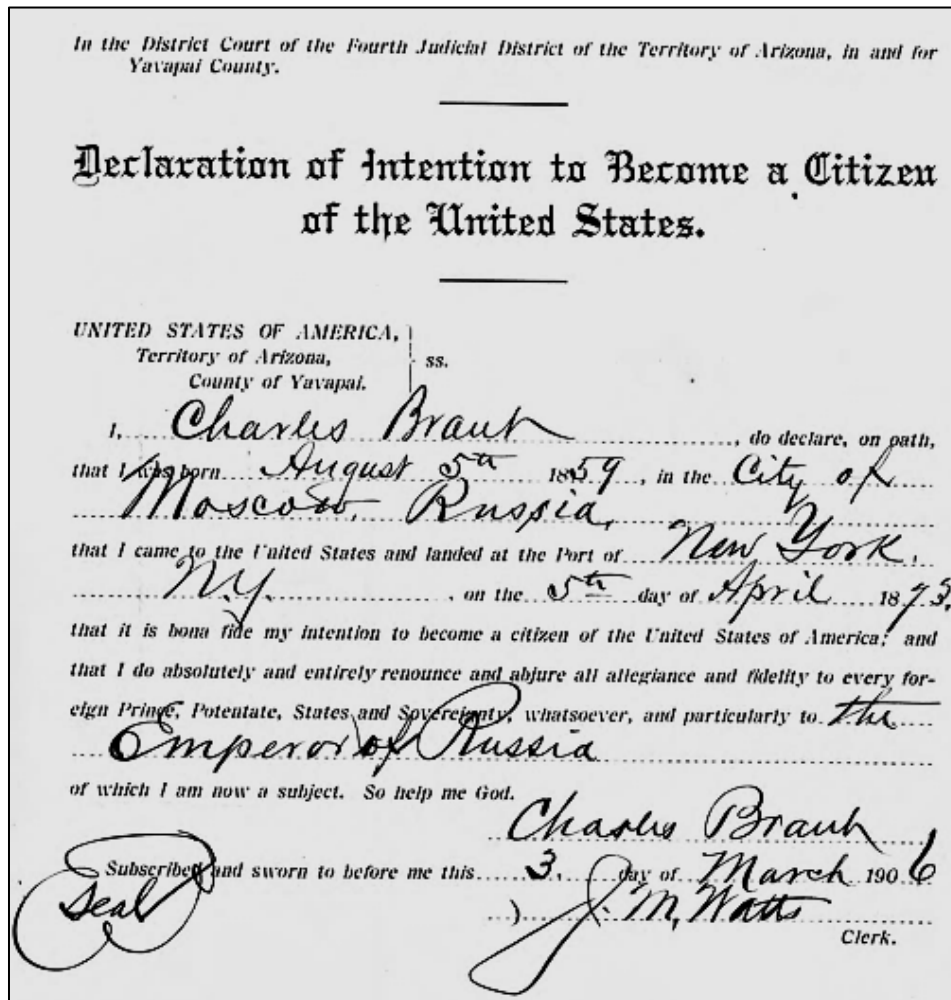 In the District Court of the Fourth Judicial District of the Territory of Arizona, in and for
Yavapai County.
Declaration of Intention to Become a Citizen
of the United States.
UNITED STATES OF AMERICA,
Territory of Arizona,
County of Yavapai.
ss.
I, Charles , do declare, on oath,
that I was born August 5th 1859, in the City of
Moscow, Russia,
that I came to the United States and landed at the Port of New York,
N.Y. , on the 5th day of April 1893,
that it is bona fide my intention to become a citizen of the United States of America; and
that I do absolutely and entirely renounce and abjure all allegiance and fidelity to every for-
eign Prince, Potentate, States and Sovereignty, whatsoever, and particularly to the
Emperor of Russia
of which I am now a subject. So help me God.
Charles
Subscribed and sworn to before me this 3. day of March 1906
Seal ) J. M. Watts
Clerk.